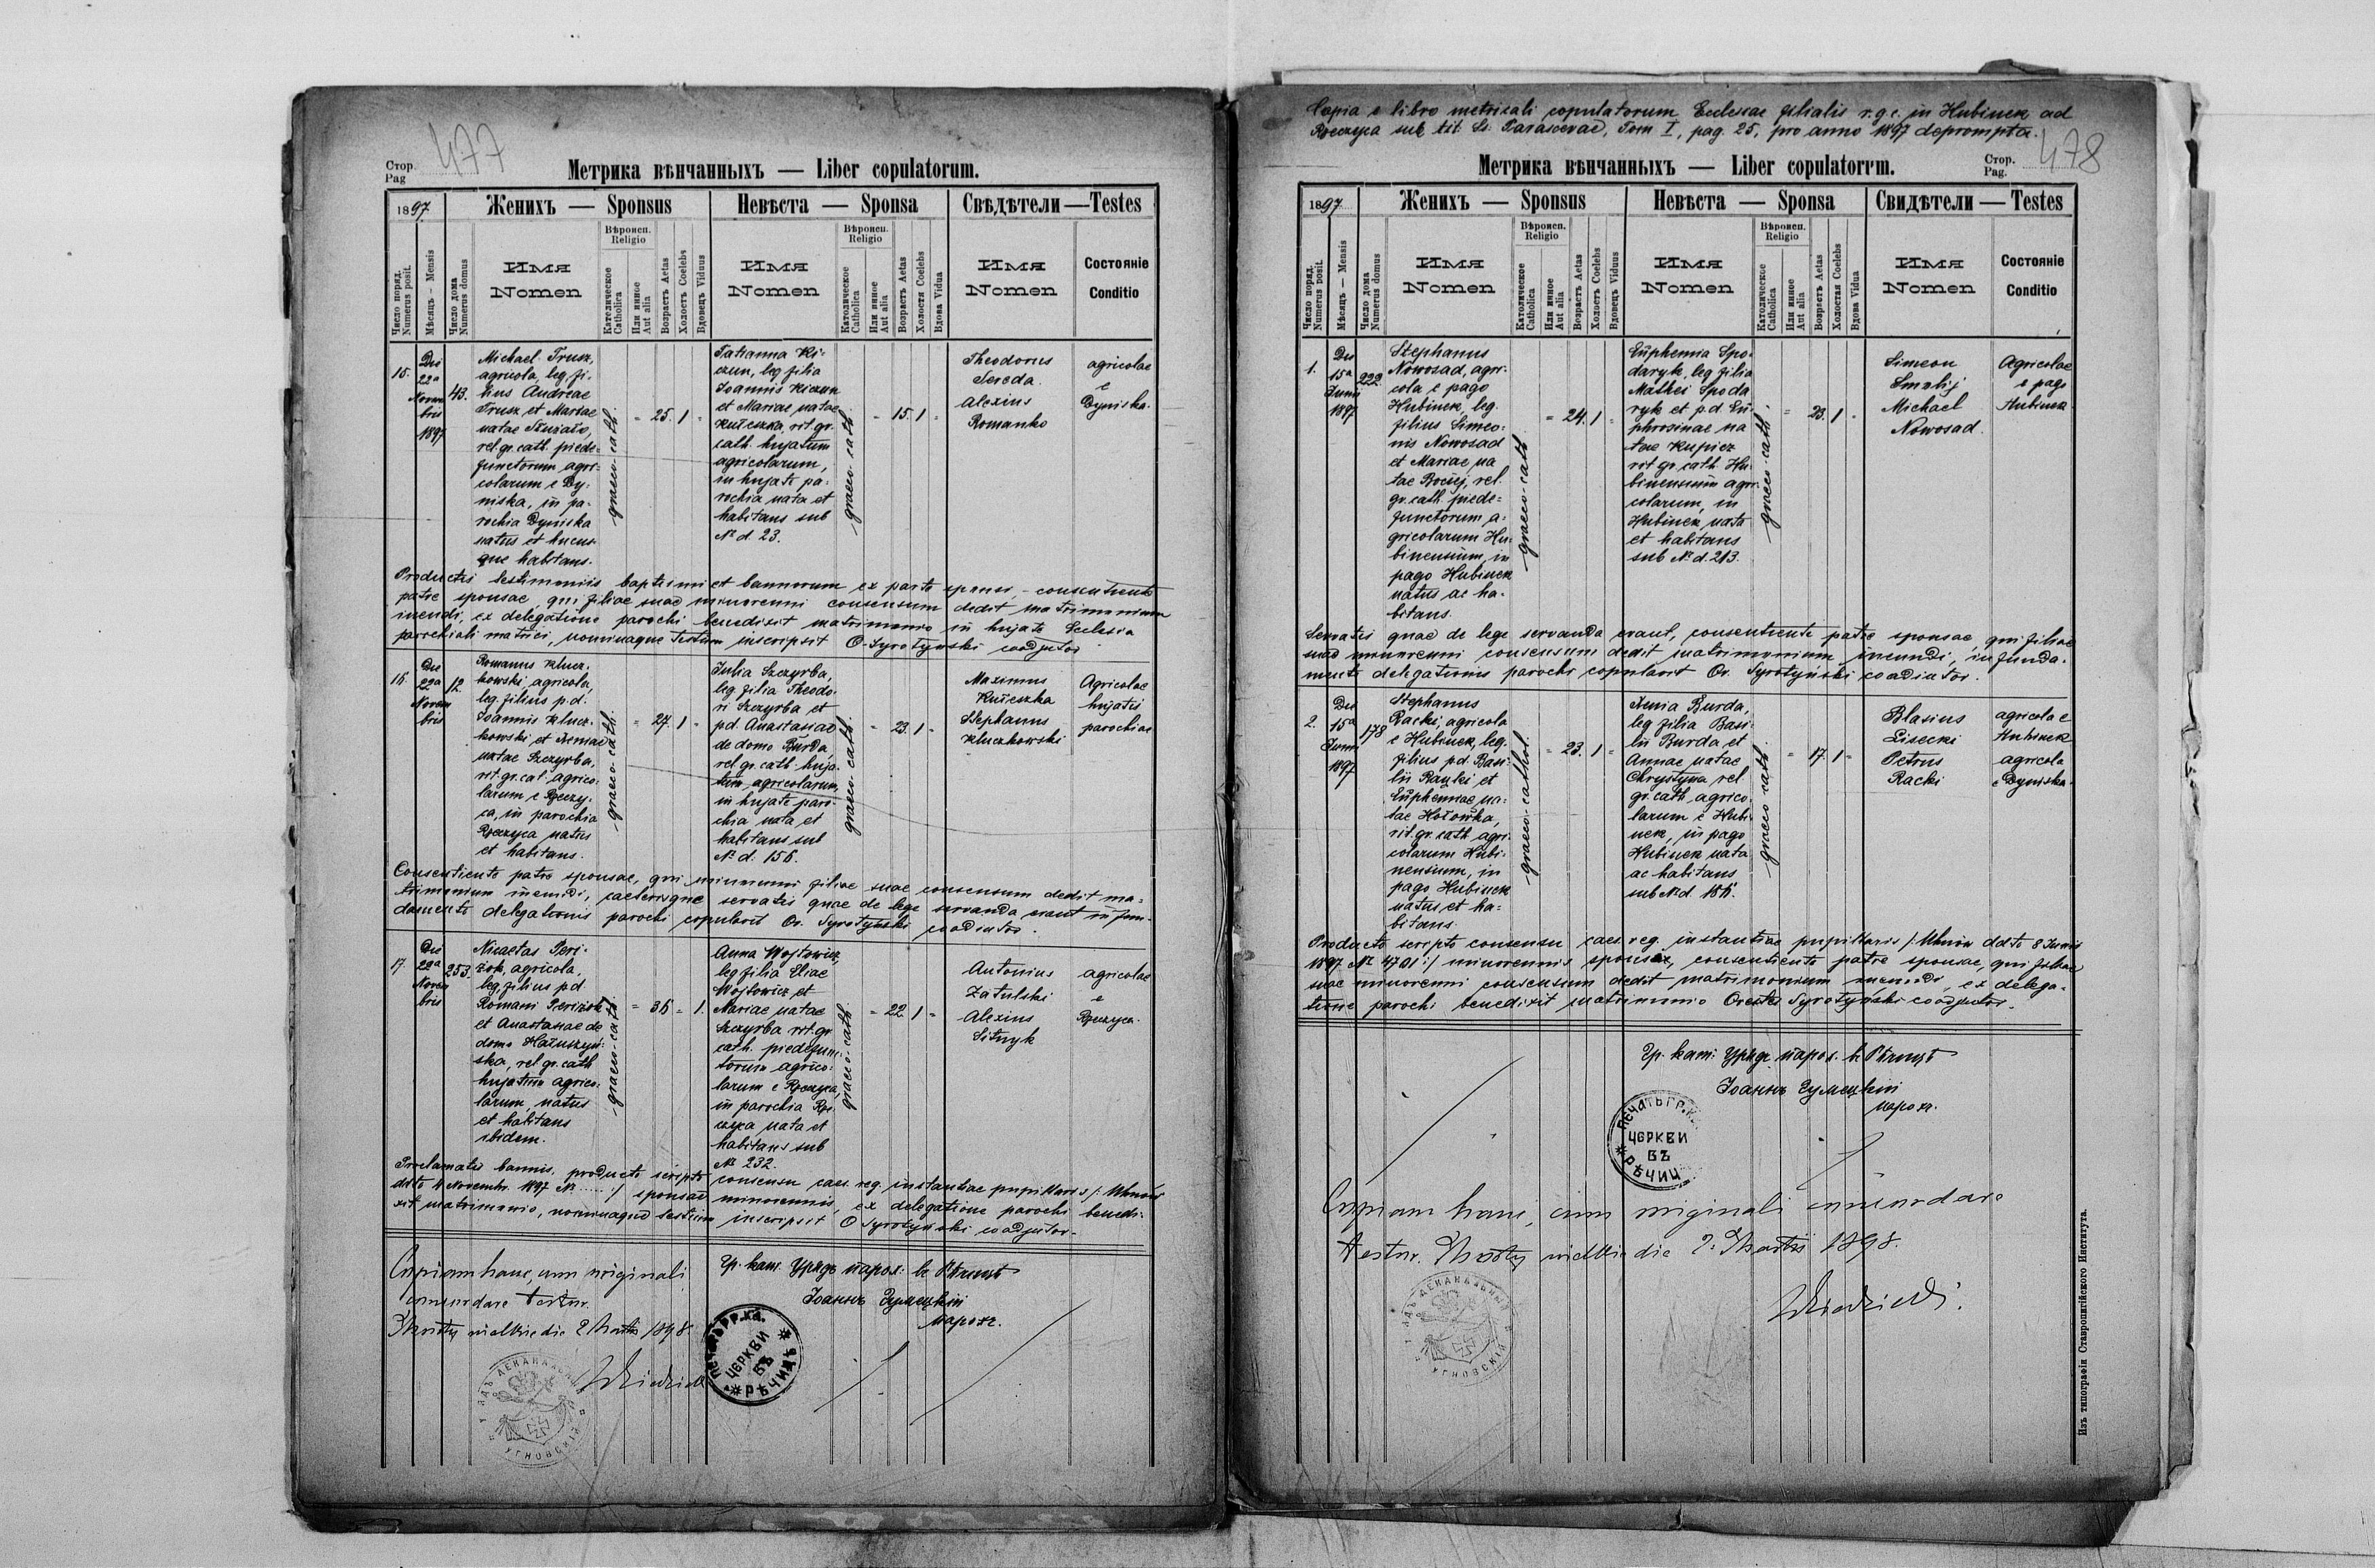 477
Стор.
Pag
Метрика вѣнчанныхъ — Liber copulatorum.
1897
Женихъ — Sponsus
Невѣста — Sponsa
Свѣдѣтели — Testes
Число поряд.
Numerus posit.
Мѣсяцъ — Mensis
Число дома
Numerus domus
Имя
Nomen
Вѣроисп.
Religio
Католическое
Catholica
Или инное
Aut alia
Возрастъ Aetas
Холостъ Coelebs
Вдовецъ Viduus
Имя
Nomen
Вѣроисп.
Religio
Католическое
Catholica
Или инное
Aut alia
Возрастъ Aetas
Холостя Coelebs
Вдова Vidua
Имя
Nomen
Состояніе
Conditio
15.
Die
22a
Novem
bris
1897
43.
Michael Trusz,
agricola, leg. fi-
lius Andreae
Trusz et Mariae
natae
rel. gr. cath. piede-
functorum agri-
colarum e Dy-
niska, in pa-
rochia Dyniska
natus et hucus-
que habitans.
graeco-cath.
25. 1
Tatianna Ki-
czun, leg. filia
Joannis Kiczun
et Mariae natae
Kuleczka, rit. gr.
cath. hujatum
agricolarum,
in hujate pa-
rochia nata et
habitans sub
№ d. 23.
graeco-cath
15. 1
Theodorus
Sereda.
Alexius
Romanko
agricolae
e
Dyniska.
Productis testimoniis baptismi et bannorum ex parte sponsi, - consentiente
patre sponsae, qui filiae suae minorenni consensum dedit matrimonium
ineundi, ex delegatione parochi benedixit matrimonio in hujate Ecclesia
parochiali matrici, nominaque testium inscripsit O. Syrotyński coadjutor
16.
Die
22a
Novem
bris
12.
Romanus Klucz-
kowski agricola,
leg. filius p.d.
Joannis Klucz-
kowski, et Xeniae
natae Szczyrba,
rit. gr. cat. agrico-
larum e Rzeczy-
ca, in parochia
Rzeczyca natus
et habitans.
graeco-cath.
27. 1
Julia Szczyrba,
leg. filia Theodo-
ri Szczyrba et
pd. Anastasiae
de domo Burda,
rel. gr. cath. huja-
tum agricolarum,
in hujate paro-
chia nata et
habitans sub
№ d. 156.
graeco-cath.
23. 1
Maximus
Kuleczka
Stephanus
Kluczkowski
Agricolae
hujatis
parochiae
Consentiente patre sponsae, qui minorenni filiae suae consensum dedit ma-
trimonium ineundi, caeterisque servatis quae de lege servanda erant in fun-
damento delegationis parochi copulavit Or. Syrotyński coadiutor.
17.
Die
22a
Novem
bris
253.
Nicaetas Peri-
żok, agricola,
leg. filius pd.
Romani Periżok
et Anastasiae de
domo Hałuszyń-
ska, rel. gr. cath
hujatum agrico-
larum, natus
et habitans
ibidem.
graeco-cath
36 1.
Anna Wojtowicz,
leg. filia Eliae
Wojtowicz et
Mariae natae
Szczyrba rit. gr.
cath. piedefunc-
torum agrico-
larum e Rzeczyca,
in parochia Rze-
czyca nata et
habitans sub
№ 232.
graeco-cath.
22. 1
Antonius
Zatulski
Alexius
Sitnyk
agricolae
e
Rzeczyca.
Proclamatis bannis, producto scripto consensu caes. reg. instantiae pupillaris /: Uhnów
ddto 4 Novembr. 1897 № ...... :/ sponsae minorennis, ex delegatione parochi benedi-
xit matrimonio, nominaque testium inscripsit O Syrotyński coadjutor.
Copiam hanc, cum originali
concordare testor.
die 2 Martii 1898.
Гр. кат. Урядъ парох. въ Рѣчицѣ
Іоаннъ
парох.
ПЕЧАТЬ ГР. КА.
ЦЕРКВИ
ВЪ
РѢЧИЦѢ
УГНОВСКІЙ
Copia e libro metricali copulatorum Ecclesiae filialis r.g.c. in Hubinek ad
Rzeczyca sub tit. S. Parascevae, Tom I, pag 25, pro anno 1897 deprompta.
478
Стор.
Pag.
Метрика вѣнчанныхъ — Liber copulatorum.
1897
Женихъ — Sponsus
Невѣста — Sponsa
Свидѣтели — Testes
Число поряд.
Numerus posit.
Мѣсяцъ — Mensis
Число дома
Numerus domus
Имя
Nomen
Вѣроисп.
Religio
Католическое
Catholica
Или инное
Aut alia
Возрастъ Aetas
Холостъ Coelebs
Вдовецъ Viduus
Имя
Nomen
Вѣроисп.
Religio
Католическое
Catholica
Или инное
Aut alia
Возрастъ Aetas
Холостая Coelebs
Вдова Vidua
Имя
Nomen
Состояніе
Conditio
1.
Die
15a
Junii
1897
222
Stephanus
Nowosad, agri-
cola e pago
Hubinek, leg.
filius Simeo-
nis Nowosad
et Mariae na
tae rel.
gr. cath. piede-
functorum a-
gricolarum Hu-
binensium, in
pago Hubinek
natus ac ha-
bitans.
graeco-cath
24. 1
Euphemia Spo-
daryk, leg. filia
Mathei Spoda
ryk et p.d. Eu-
phrosinae na
tae Kupicz
rit. gr. cath. Hu-
binensium agri-
colarum, in
Hubinek nata
et habitans
sub № d. 213.
graeco-cath.
23. 1
Simeon
Smalij
Michael
Nowosad.
Agricolae
e pago
Hubinek
Servatis quae de lege servanda erant, consentiente patre sponsae, qui filiae
suae minorenni consensum dedit matrimonium ineundi, in funda-
mento delegationis parochi copulavit Or. Syrotyński coadiutor.
2.
Die
15a
Junii
1897
178
Stephanus
Racki, agricola
e Hubinek, leg.
filius pd. Basi-
lii Racki et
Euphemiae na-
tae Hołowka,
rit. gr. cath. agri-
colarum Hubi-
nensium, in
pago Hubinek
natus et ha-
bitans.
graeco-cathol.
23. 1
Xenia Burda,
leg. filia Basi-
lii Burda et
Annae natae
Chrystyna rel.
gr. cath. agrico
larum e Hubi-
nek, in pago
Hubinek nata
ac habitans
sub № d. 156.
graeco cath.
17. 1
Blasius
Lisecki
Petrus
Racki
agricola e
Hubinek
agricola
e Dyniska.
Producto scripto consensu caes. reg. instantiae pupillaris /: Uhnów ddto 8 Junii
1897 № 4701 :/ minorennis sponsi, consentiente patre sponsae, qui filiae
suae minorenni consensum dedit matrimonium ineundi, ex delega-
tione parochi benedixit matrimonio Orestes Syrotyński coadjutor.
Гр. кат. Урядъ парох. въ Рѣчицѣ
Іоаннъ
парох.
ПЕЧАТЬ ГР. К.
ЦЕРКВИ
ВЪ
РѢЧИЦ
Copiam hanc, cum originali concordare
testor. die 2. Martii 1898.
УГНОВСКІЙ
Изъ типографіи Ставропигійского Института.